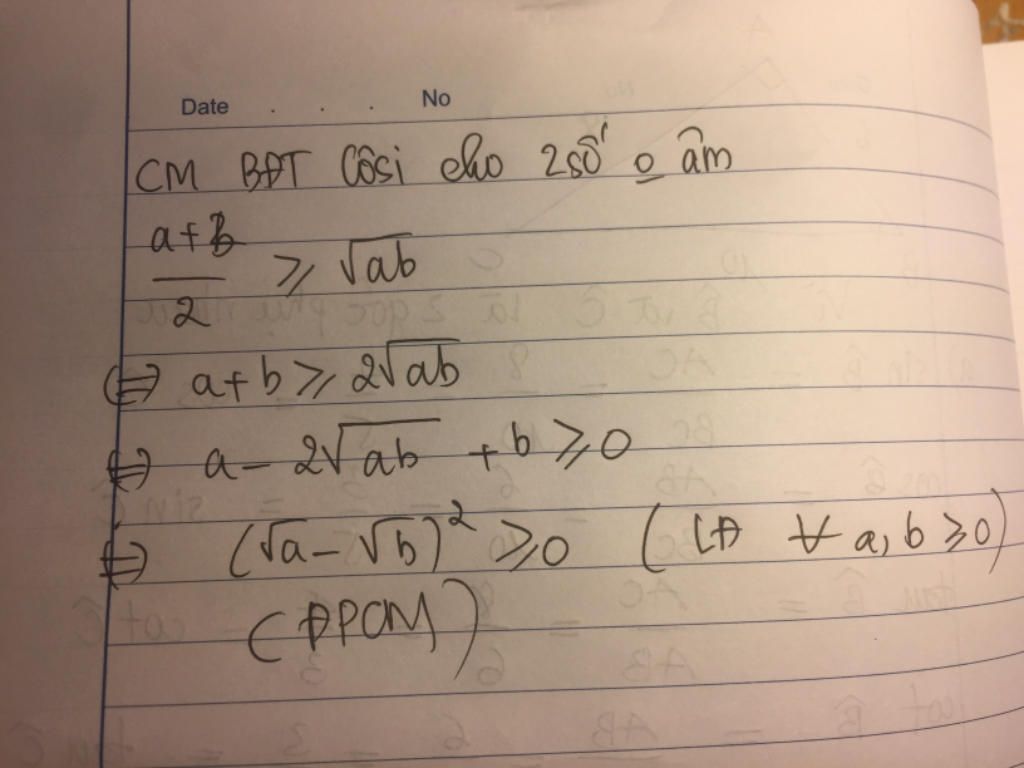 Date . . . No
CM BĐT Côsi cho 2 số o âm
a+b/2 ≥ √ab
⇔ a+b ≥ 2√ab
⇔ a - 2√ab + b ≥ 0
⇔ (√a - √b)² ≥ 0 (LĐ ∀ a, b ≥ 0)
(ĐPCM)